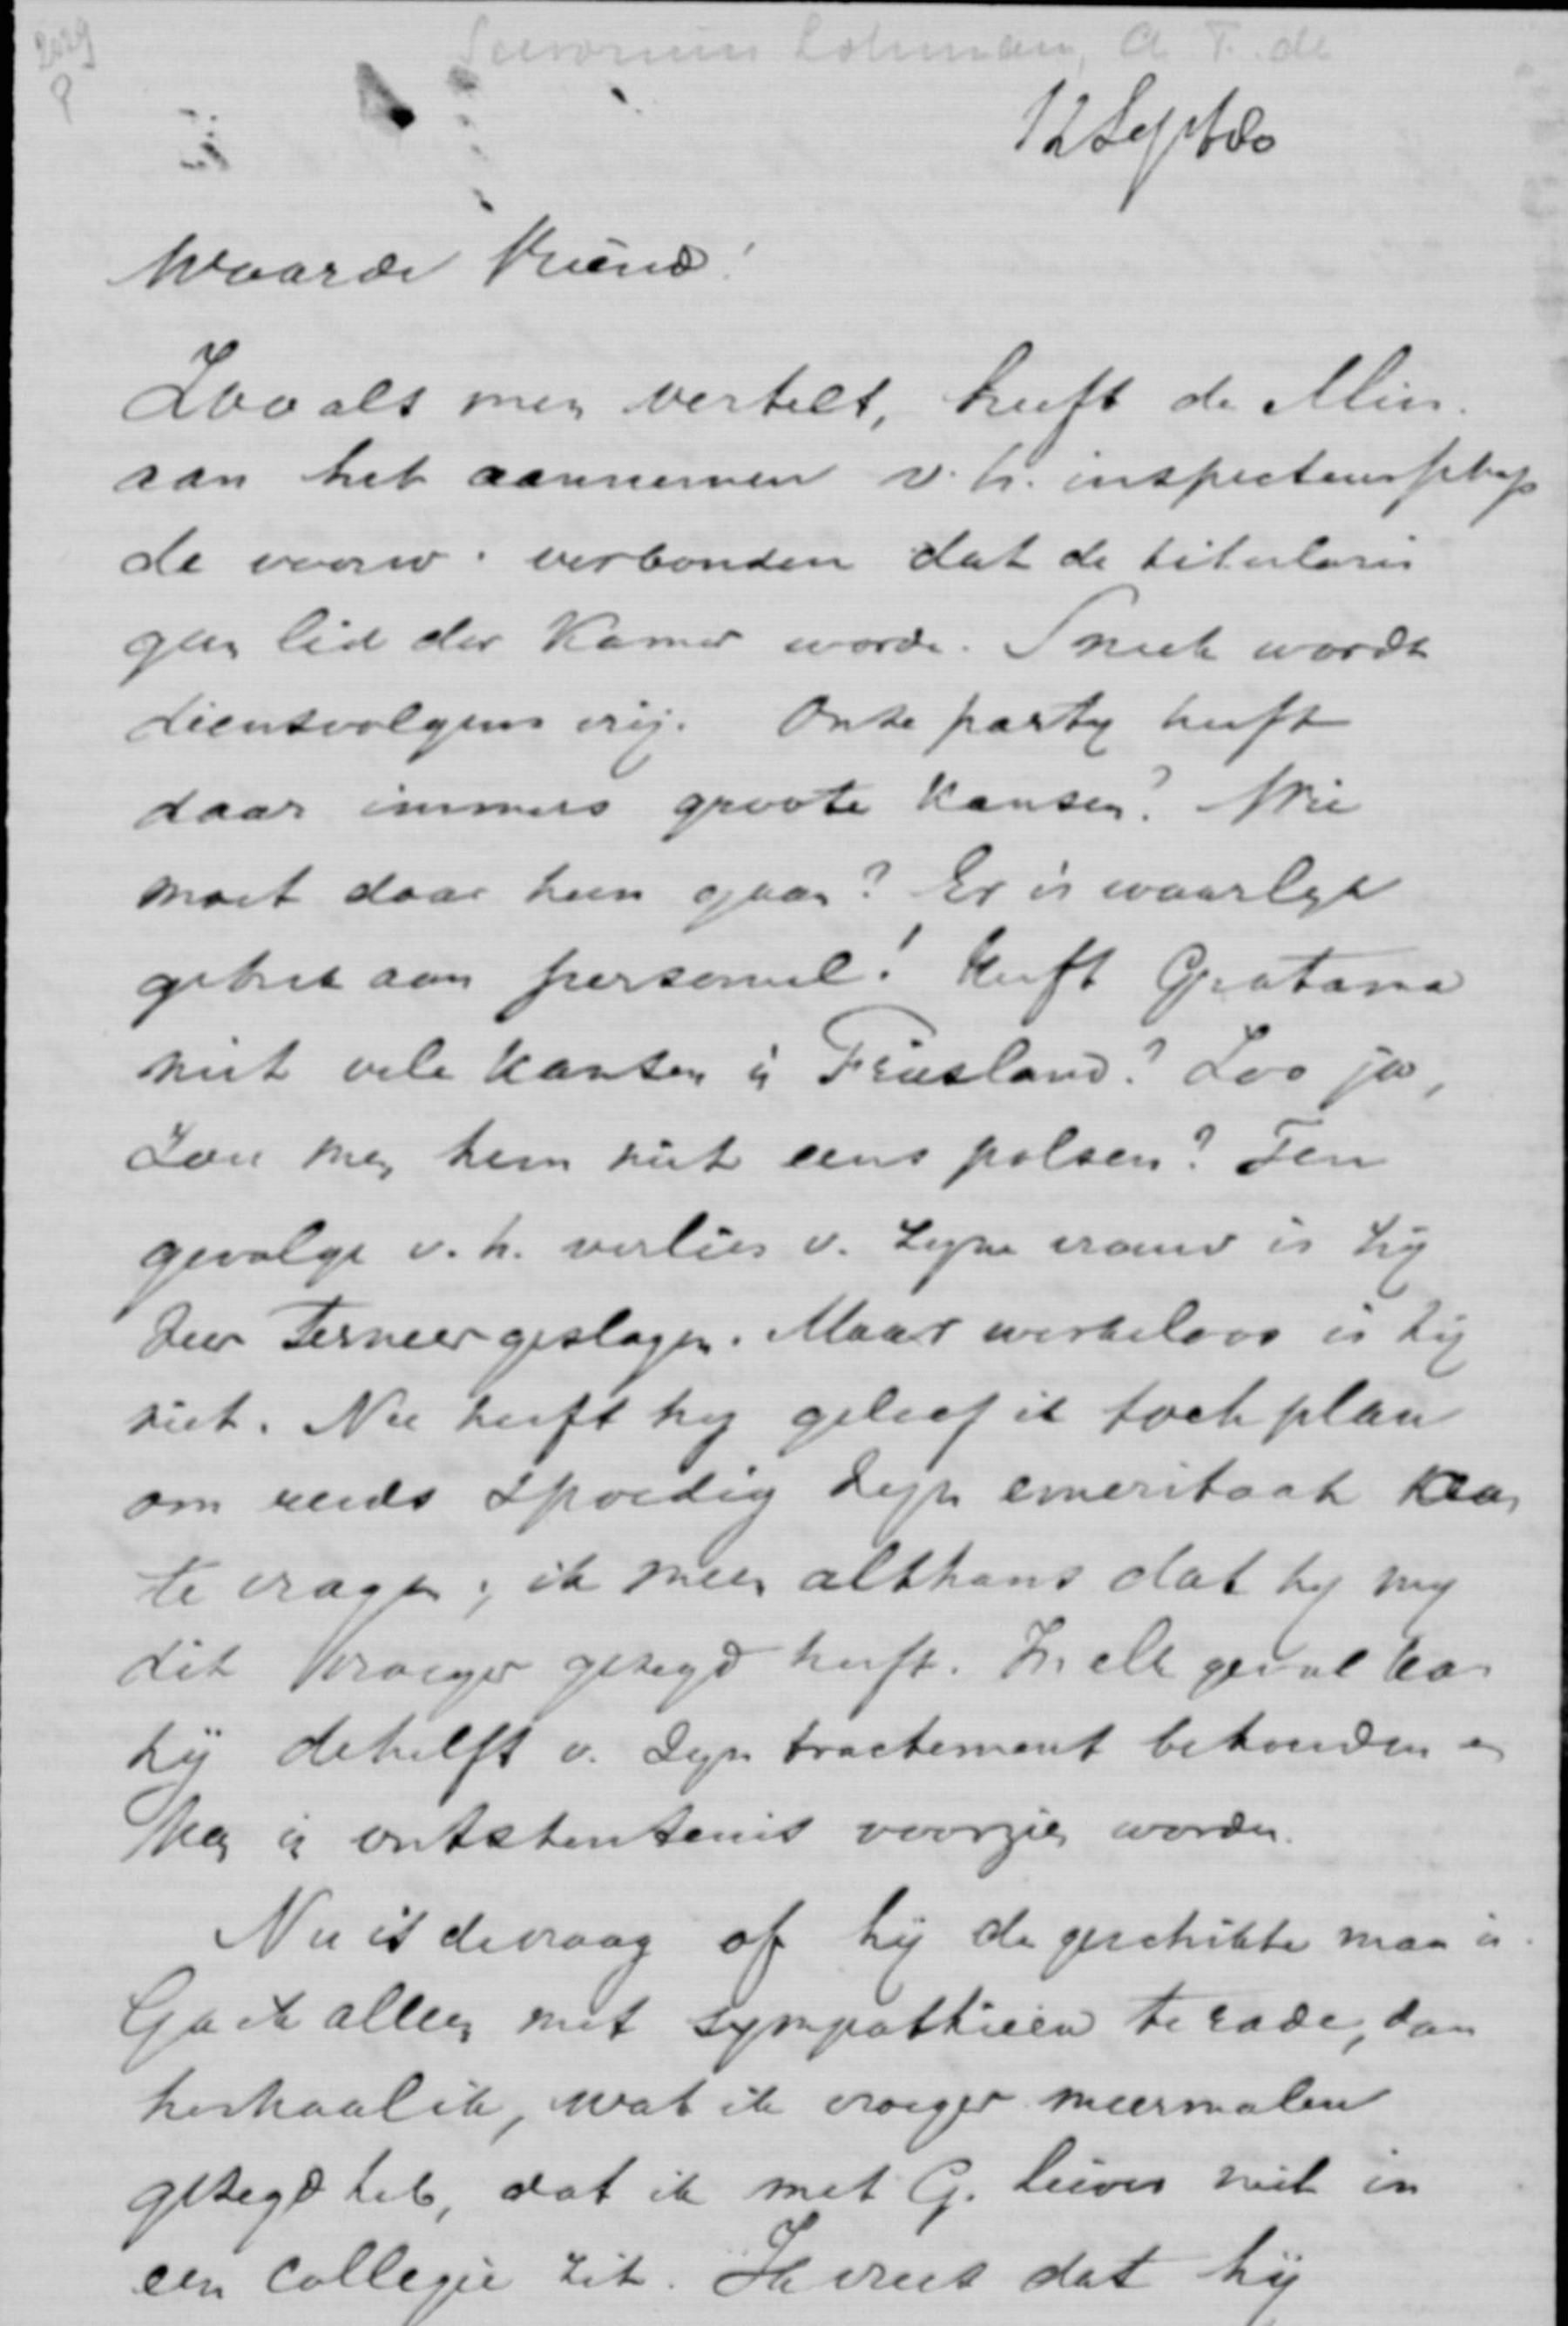 2029
Savornin Lohman, A. F. de
12 Sept 80
Waarde Vriend!
Zooals men vertelt, heeft de Min.
aan het aannemen v. h. inspecteurschap
de voorw. verbonden dat de titularis
geen lid der Kamer worde. Sneek wordt
dientvolgens vrij. Onze party heeft
daar immers groote kansen? Wie
moet daar heen gaan? Er is waarlyk
gebrek aan personeel! Heeft Gratama
niet vele kansen in Friesland? Zoo ja,
zou men hem niet eens polsen? Ten
gevolge v. h. verlies v. zyne vrouw is hij
zeer terneergeslagen. Maar werkeloos is hij
niet. Nu heeft hy geloof ik toch plan
om reeds spoedig zyn emeritaat
te vragen; ik meen althans dat hy my
dit vroeger gezegd heeft. In elk geval kan
hij de helft v. zyn tractement behouden en
kan in ontstentenis voorzien worden.
Nu is de vraag of hij de geschikte man is.
Ga ik alleen met sympathieën te rade, dan
herhaal ik, wat ik vroeger meermalen
gezegd heb, dat ik met G. liever niet in
een collegie zit. Ik vrees dat hij